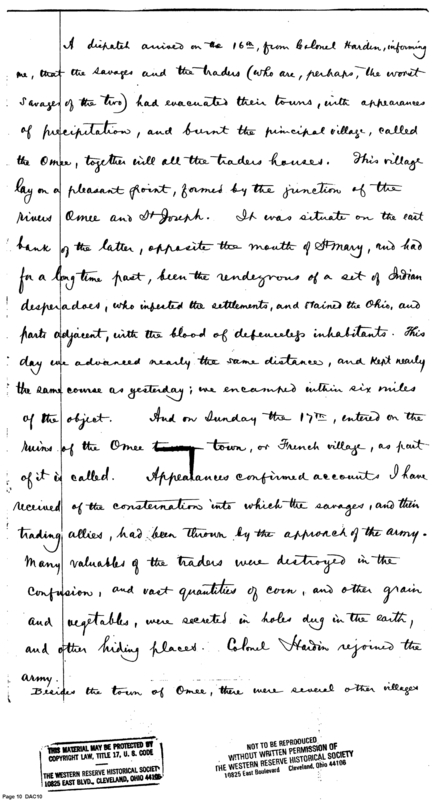 A dispatch arrived on the 16th, from Colonel Hardin, informing
me, that the savages and the traders (who are, perhaps, the worst
savages of the two) had evacuated their towns, with appearances
of precipitation, and burnt the principal village, called
the Omee, together with all the traders houses. This village
lay on a pleasant point, formed by the junction of the
rivers Omee and St Joseph. It was situate on the east
bank of the latter, opposite the mouth of St Mary, and had
for a long time past, been the rendezvous of a set of Indian
desperadoes, who infested the settlements, and stained the Ohio, and
parts adjacent, with the blood of defenceless inhabitants. This
day we advanced nearly the same distance, and kept nearly
the same course as yesterday; we encamped within six miles
of the object. And on Sunday the 17th, entered on the
ruins of the Omee town, or French village, as part
of it is called. Appearances confirmed accounts I have
received of the consternation into which the savages, and their
trading allies, had been thrown by the approach of the army.
Many valuables of the traders were destroyed in the
confusion, and vast quantities of corn, and other grain
and vegetables, were secreted in holes dug in the earth,
and other hiding places. Colonel Hardin rejoined the
army.
Besides the town of Omee, there were several other villages
THIS MATERIAL MAY BE PROTECTED BY
COPYRIGHT LAW, TITLE 17, U. S. CODE
THE WESTERN RESERVE HISTORICAL SOCIETY
10825 EAST BLVD., CLEVELAND, OHIO 44106
NOT TO BE REPRODUCED
WITHOUT WRITTEN PERMISSION OF
THE WESTERN RESERVE HISTORICAL SOCIETY
10825 East Boulevard Cleveland, Ohio 44106
Page 10 DAC10